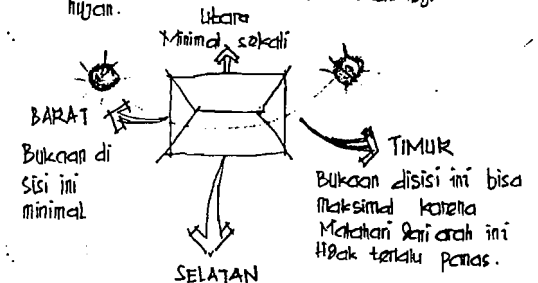 hujan.
Utara
Minimal sekali
BARAT
Bukaan di
sisi ini
minimal
TIMUR
Bukaan disisi ini bisa
Maksimal karena
Matahari dari arah ini
tidak terlalu panas.
SELATAN